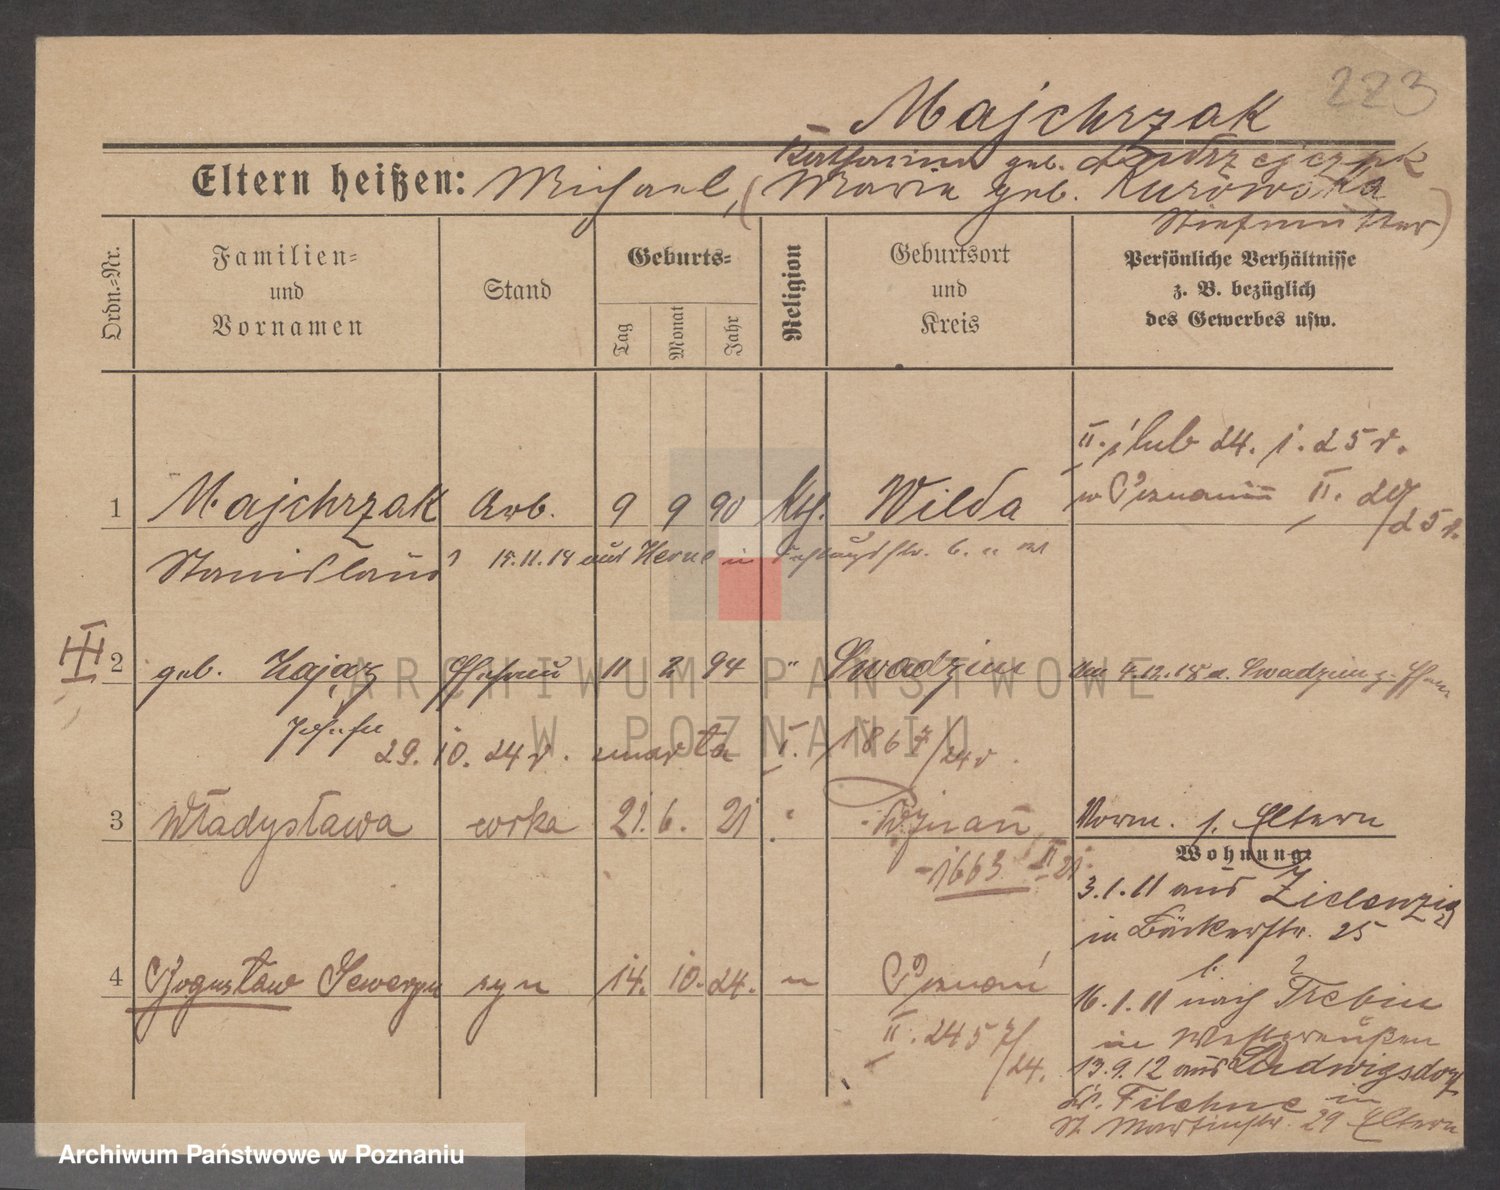 223
Majchrzak
Katharina geb. Andrzejczak
Eltern heißen: Michael, (Maria geb. Kurowska
Stiefmutter)
Ordn.-Nr.
Familien-
und
Vornamen
Stand
Geburts-
Tag
Monat
Jahr
Religion
Geburtsort
und
Kreis
Persönliche Verhältnisse
z. B. bezüglich
des Gewerbes usw.
II. ślub 24. 1. 25 r.
w Poznaniu II.
/25 r.
1 Majchrzak Arb. 9 9 90 Kth. Wilda
Stanislaus
15.11.14 aus Herne in
2 geb. Zając Ehefrau 11 2 94 " Swadzim
Josefa
29. 10. 24 r. umarła I. 1867/24 r.
3 Władysława córka 21. 6. 21 " Poznań
1663 II 21
Vorm. s. Eltern
Wohnung:
3.1.11 aus Zielenzig
in Bäckerstr. 25
16.1.11 nach Trebin
in Westpreußen
13.9.12 aus Ludwigsdorf
Kr. Filehne in
St. Martinstr. 29 Eltern
4 Bogusław Seweryn syn 14. 10. 24. " Poznań
II. 2457/24.
ARCHIWUM PAŃSTWOWE
W POZNANIU
Archiwum Państwowe w Poznaniu